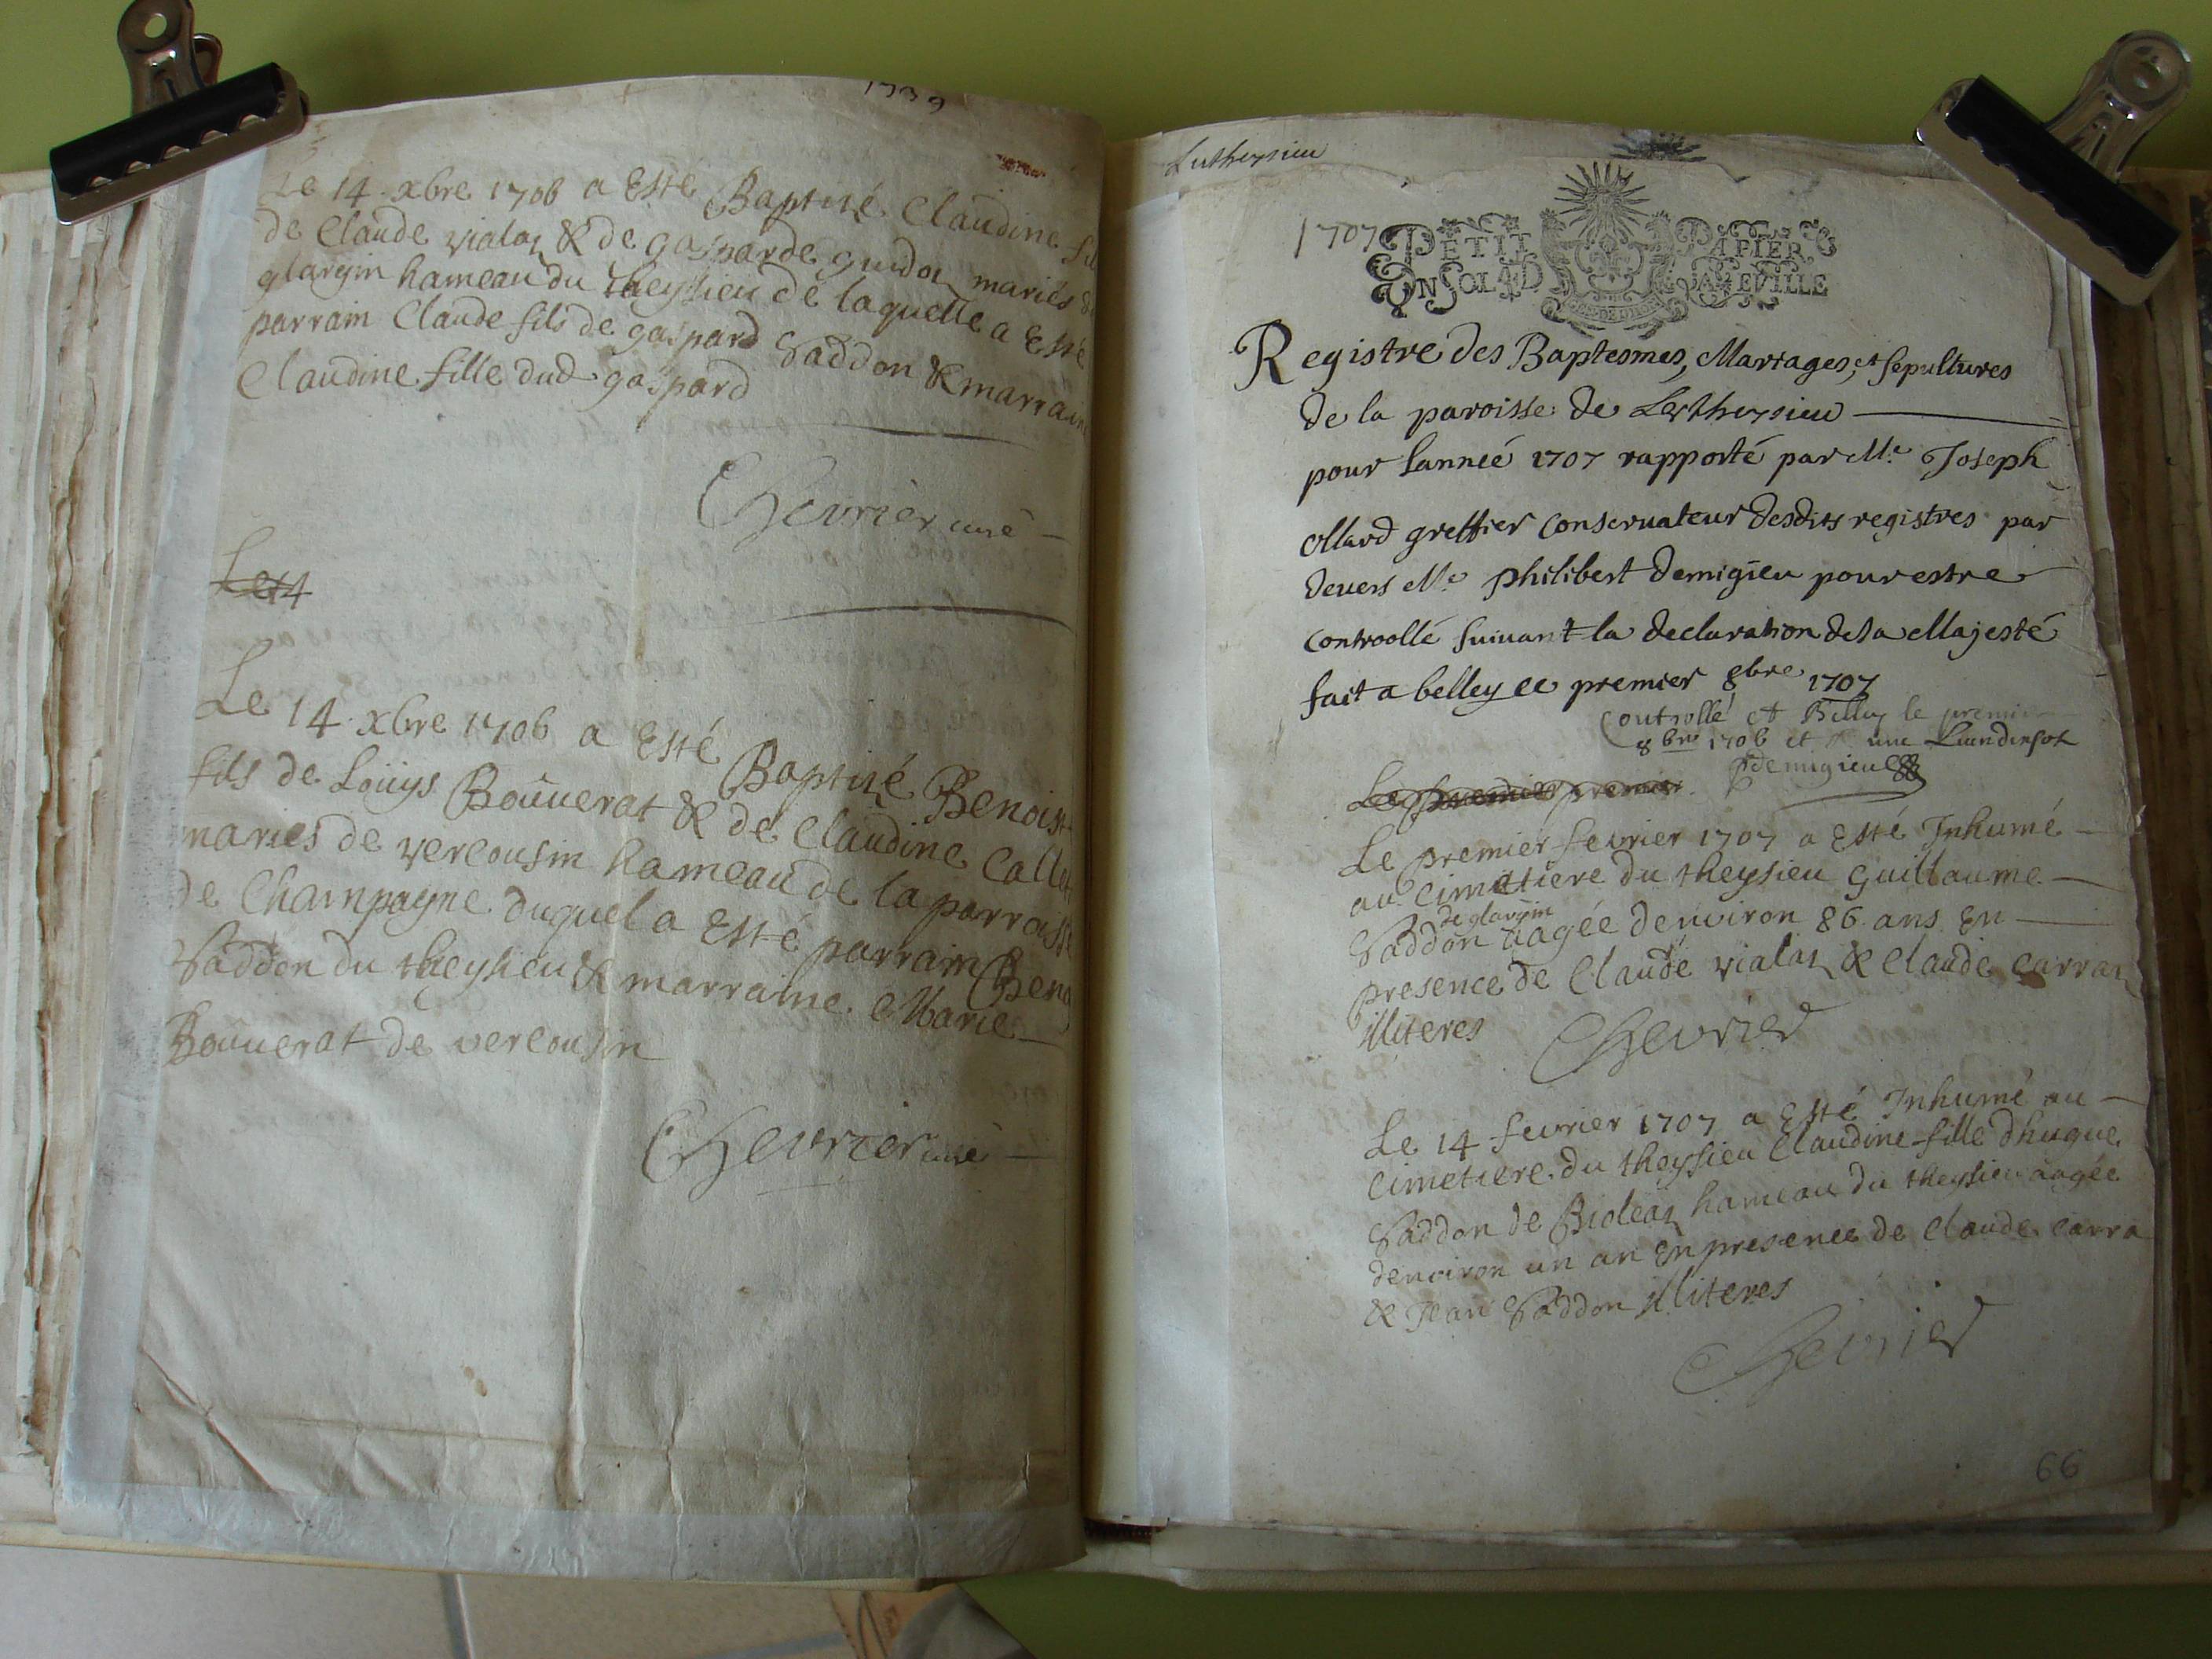 1739
Le 14 xbre 1706 a Esté Baptizé Claudine fil
de Claude vialaz & de gasparde guidoz mariés d
glargin hameau du theysieu de laquelle a Esté
parrain Claude fils de gaspard Saddon & marraine
Claudine fille dud gaspard
Chevrier curé
Le 14
Le 14 xbre 1706 a Esté Baptizé Benoist
fils de Loüys Boüuerat & de Claudine Callet
maries de vercousin hameau de la parroisse
de Champagne duquel a Esté parrain Beno
Saddon du theysieu & marraine Marie
Boüuerat de vercousin
Chevrier curé
Lutheysieu
1707
PETIT PAPIER
UN SOL 4 D LA FEUILLE
Registre des Baptesmes, Mariages, et sepultures
de la paroisse de Lutheysieu
pour lannée 1707 rapporté par Me Joseph
ollard greffier conseruateur desdits registres par
deuers Me philibert demigieu pour estre
controollé suiuant la declaration de sa Majesté
fait a belley ce premier 8bre 1707
Controllé A Belley le premier
8bre 1706 et
demigieu
Le premier premier
Le premier feurier 1707 a Esté Inhumé
au Cimetiere du theysieu guillaume
de glargin
Saddon aagée denuiron 86 ans En
presence de Claude vialaz & Claude Carraz
illiteres
Chevrier
Le 14 feurier 1707 a Esté Inhumé au
Cimetiere du theysieu Claudine fille dhugue
Saddon de Bioleaz hameau du theysieu aagée
denuiron un an En presence de Claude Carra
& Jean Saddon illiteres
Chevrier
66